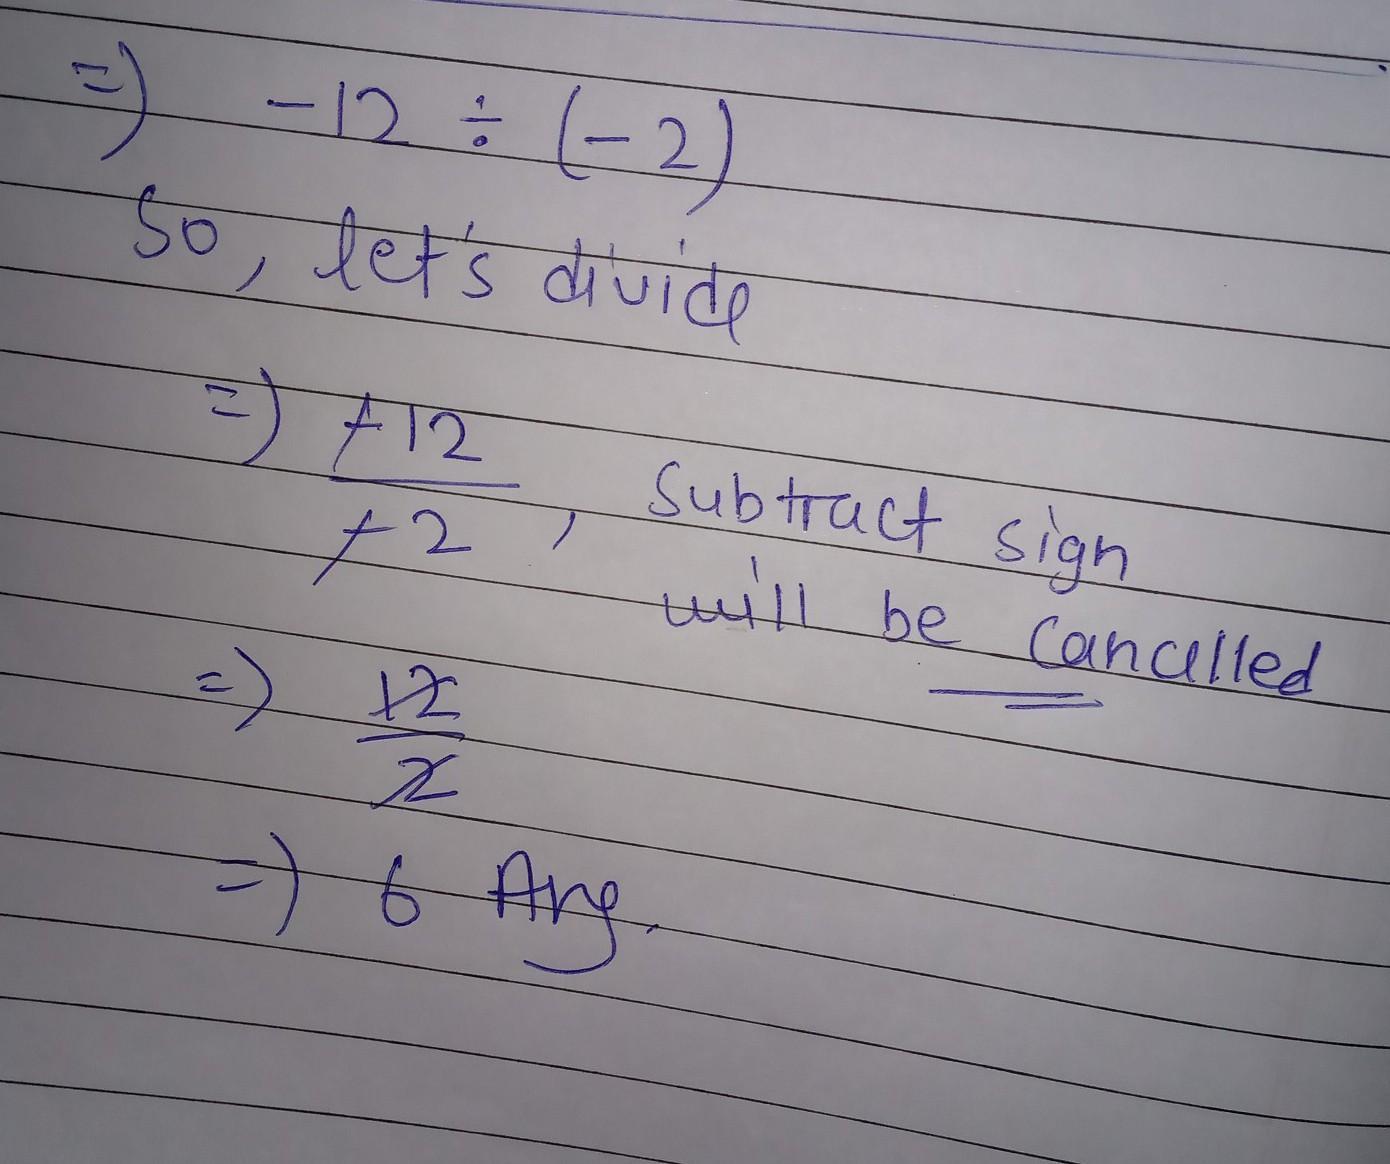 =) -12 ÷ (-2)
So, let's divide
=) -12
-2 , Subtract sign
will be cancelled
=) 12
2
=) 6 Ans.